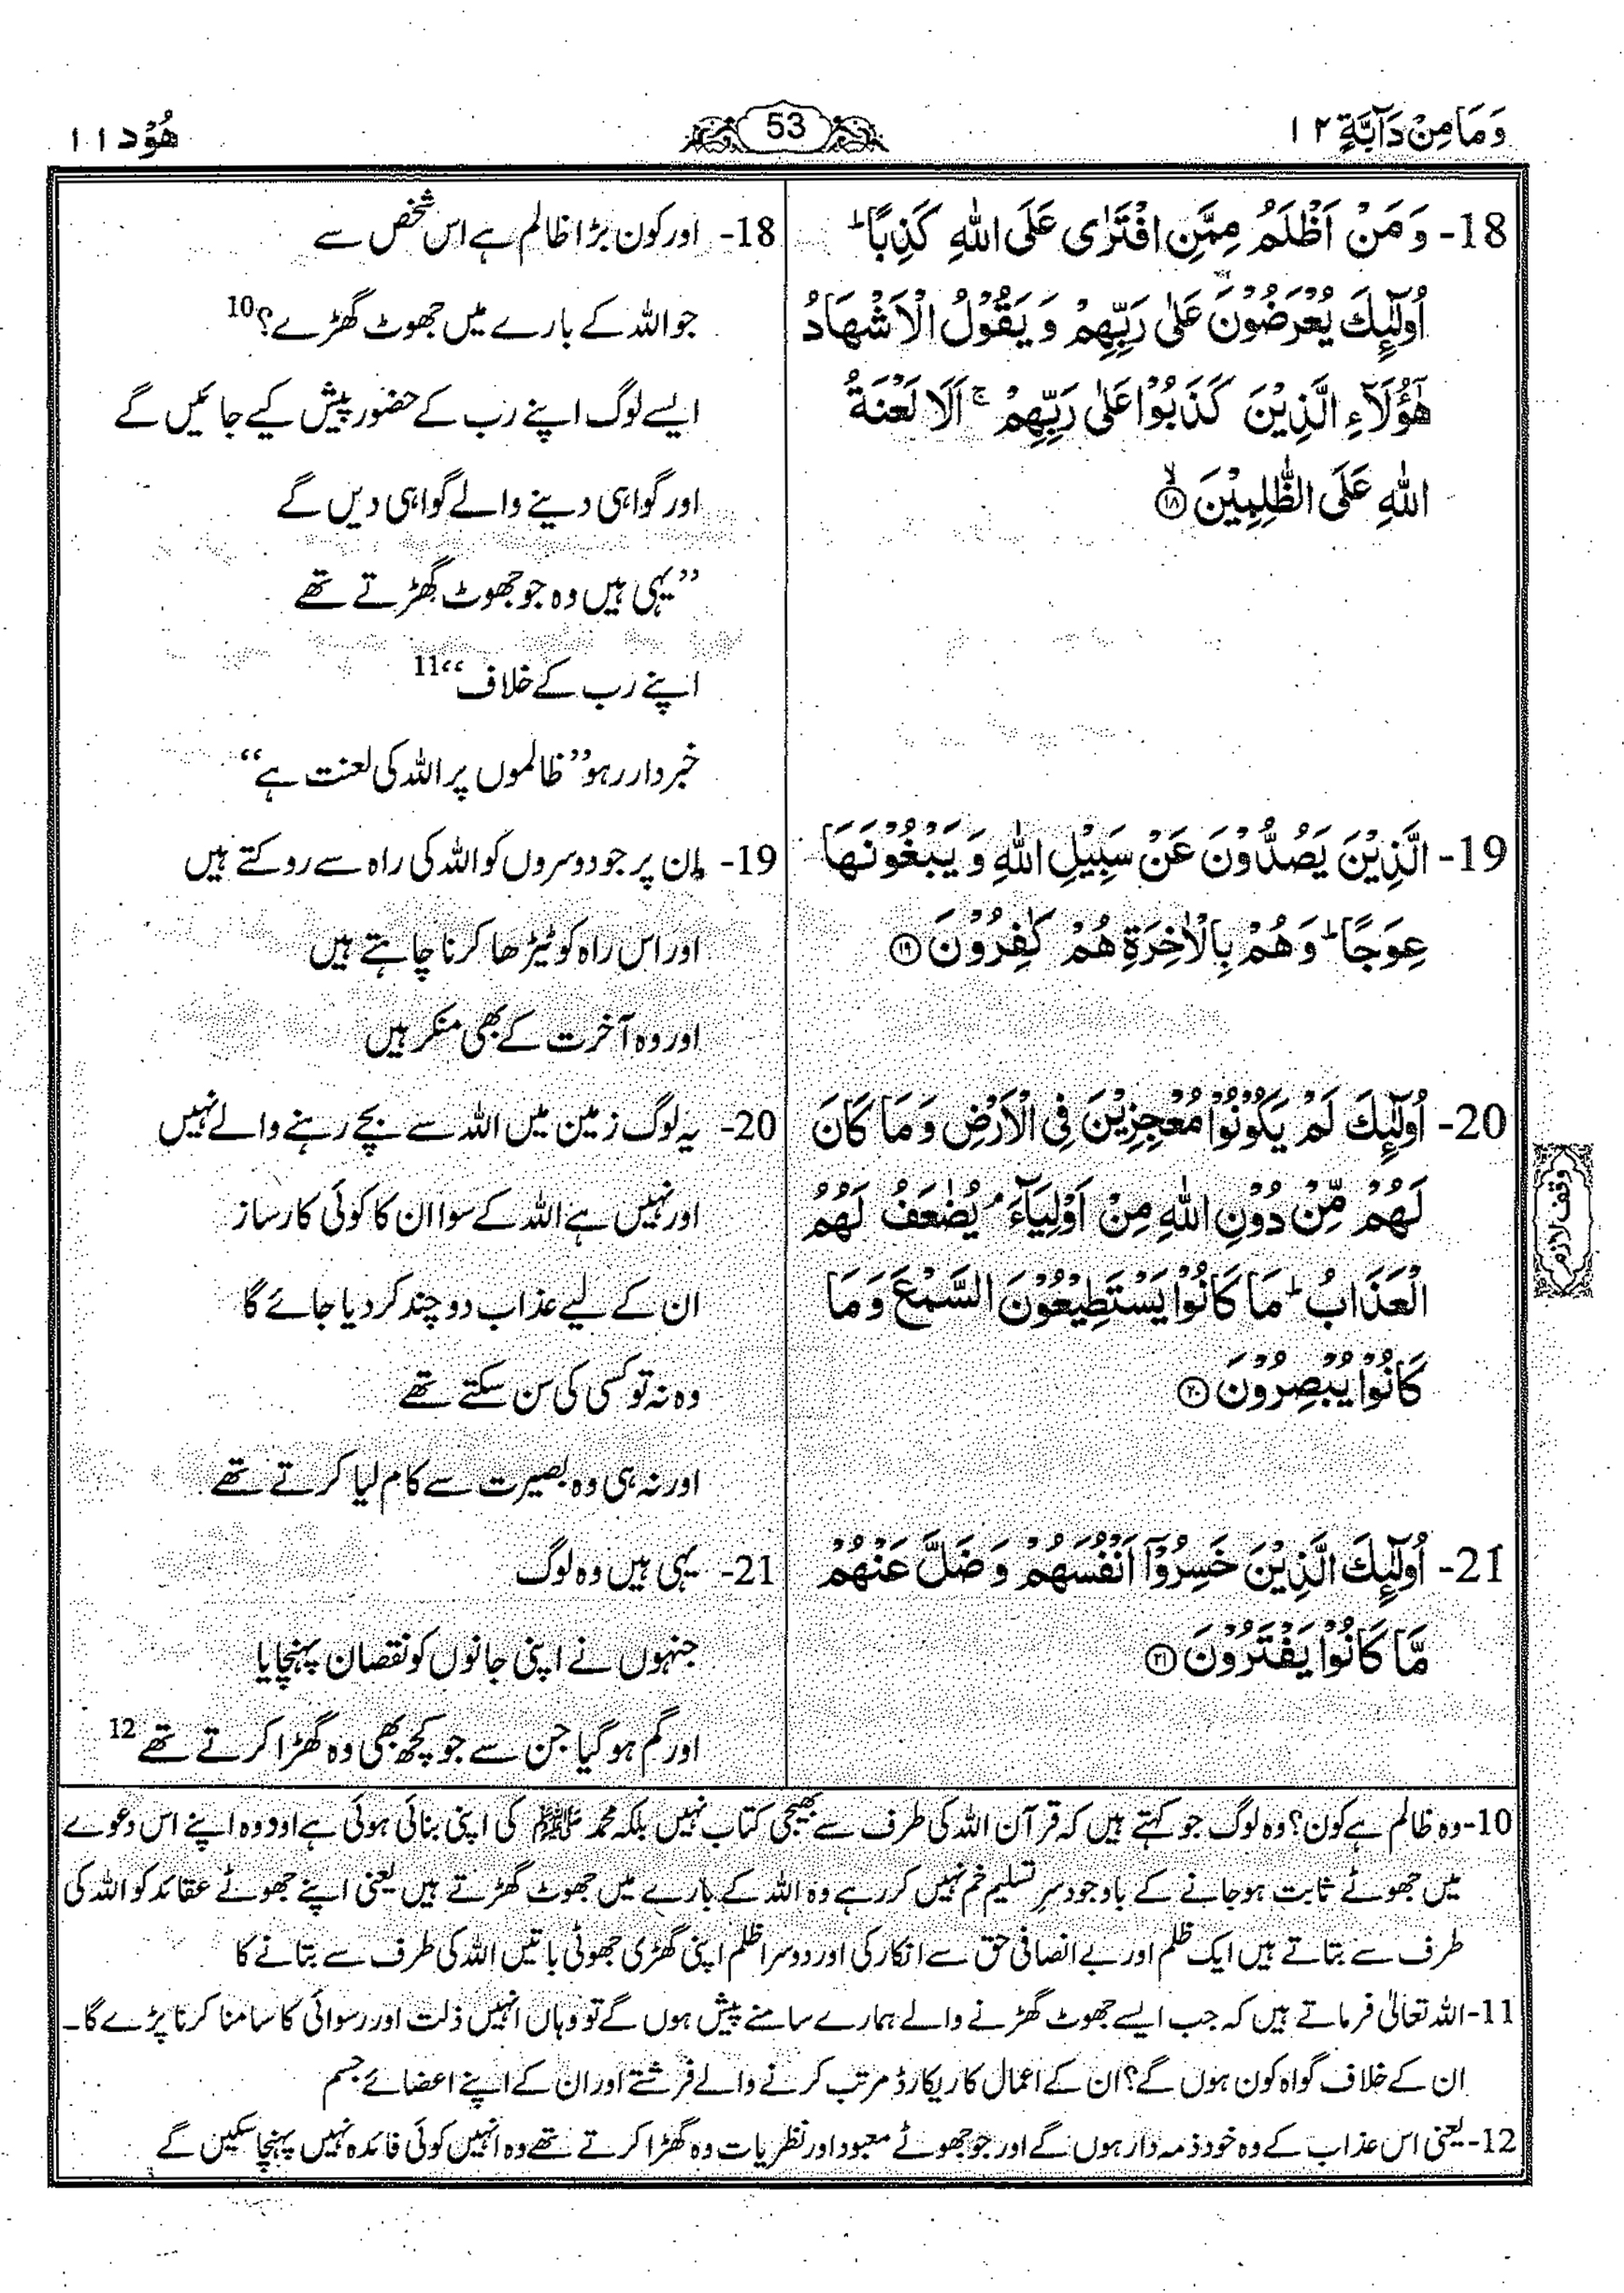 وَمَا مِنْ دَآبَّةٍ ۱۲
53
هُوْد ۱۱
18- وَمَنْ اَظْلَمُ مِمَّنِ افْتَرٰى عَلَى اللّٰهِ كَذِبًا ؕ
اُولٰٓئِكَ يُعْرَضُوْنَ عَلٰى رَبِّهِمْ وَ يَقُوْلُ الْاَشْهَادُ
هٰٓؤُلَآءِ الَّذِيْنَ كَذَبُوْا عَلٰى رَبِّهِمْ ۚ اَلَا لَعْنَةُ
اللّٰهِ عَلَى الظّٰلِمِيْنَ ۙ﴿۱۸﴾
19- الَّذِيْنَ يَصُدُّوْنَ عَنْ سَبِيْلِ اللّٰهِ وَ يَبْغُوْنَهَا
عِوَجًا ؕ وَهُمْ بِالْاٰخِرَةِ هُمْ كٰفِرُوْنَ ﴿۱۹﴾
20- اُولٰٓئِكَ لَمْ يَكُوْنُوْا مُعْجِزِيْنَ فِى الْاَرْضِ وَمَا كَانَ
لَهُمْ مِّنْ دُوْنِ اللّٰهِ مِنْ اَوْلِيَآءَ ۘ يُضٰعَفُ لَهُمُ
الْعَذَابُ ؕ مَا كَانُوْا يَسْتَطِيْعُوْنَ السَّمْعَ وَمَا
كَانُوْا يُبْصِرُوْنَ ﴿۲۰﴾
21- اُولٰٓئِكَ الَّذِيْنَ خَسِرُوْٓا اَنْفُسَهُمْ وَضَلَّ عَنْهُمْ
مَّا كَانُوْا يَفْتَرُوْنَ ﴿۲۱﴾
وقف لازم
18- اور کون بڑا ظالم ہے اس شخص سے
جو اللہ کے بارے میں جھوٹ گھڑے؟10
ایسے لوگ اپنے رب کے حضور پیش کیے جائیں گے
اور گواہی دینے والے گواہی دیں گے
”یہی ہیں وہ جو جھوٹ گھڑتے تھے
اپنے رب کے خلاف“11
خبردار رہو ”ظالموں پر اللہ کی لعنت ہے“
19- اِن پر جو دوسروں کو اللہ کی راہ سے روکتے ہیں
اور اس راہ کو ٹیڑھا کرنا چاہتے ہیں
اور وہ آخرت کے بھی منکر ہیں
20- یہ لوگ زمین میں اللہ سے بچے رہنے والے نہیں
اور نہیں ہے اللہ کے سوا ان کا کوئی کارساز
ان کے لیے عذاب دو چند کر دیا جائے گا
وہ نہ تو کسی کی سن سکتے تھے
اور نہ ہی وہ بصیرت سے کام لیا کرتے تھے
21- یہی ہیں وہ لوگ
جنہوں نے اپنی جانوں کو نقصان پہنچایا
اور گم ہو گیا جن سے جو کچھ بھی وہ گھڑا کرتے تھے12
10- وہ ظالم ہے کون؟ وہ لوگ جو کہتے ہیں کہ قرآن اللہ کی طرف سے بھیجی کتاب نہیں بلکہ محمد ﷺ کی اپنی بنائی ہوئی ہے اور وہ اپنے اس دعوے
میں جھوٹے ثابت ہو جانے کے باوجود سرِ تسلیم خم نہیں کر رہے وہ اللہ کے بارے میں جھوٹ گھڑتے ہیں یعنی اپنے جھوٹے عقائد کو اللہ کی
طرف سے بتاتے ہیں ایک ظلم اور بے انصافی حق سے انکار کی اور دوسرا ظلم اپنی گھڑی جھوٹی باتیں اللہ کی طرف سے بتانے کا
11- اللہ تعالیٰ فرماتے ہیں کہ جب ایسے جھوٹ گھڑنے والے ہمارے سامنے پیش ہوں گے تو وہاں انہیں ذلت اور رسوائی کا سامنا کرنا پڑے گا۔
ان کے خلاف گواہ کون ہوں گے؟ ان کے اعمال کا ریکارڈ مرتب کرنے والے فرشتے اور ان کے اپنے اعضائے جسم
12- یعنی اس عذاب کے وہ خود ذمہ دار ہوں گے اور جو جھوٹے معبود اور نظریات وہ گھڑا کرتے تھے وہ انہیں کوئی فائدہ نہیں پہنچا سکیں گے